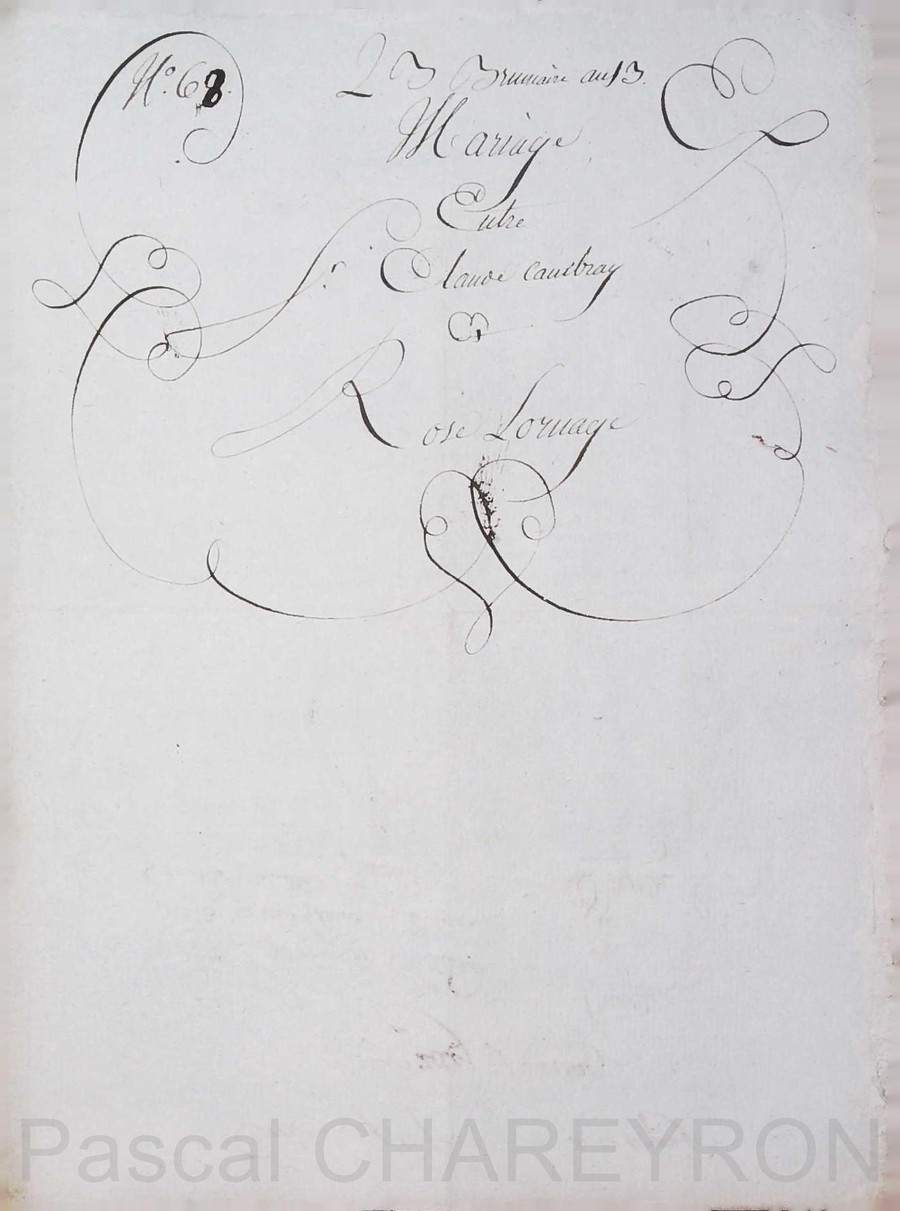 N.º 68.
23 Brumaire an 13.
Mariage
Entre
S.r Claude Cautbray
&
Rose Lornage
Pascal CHAREYRON